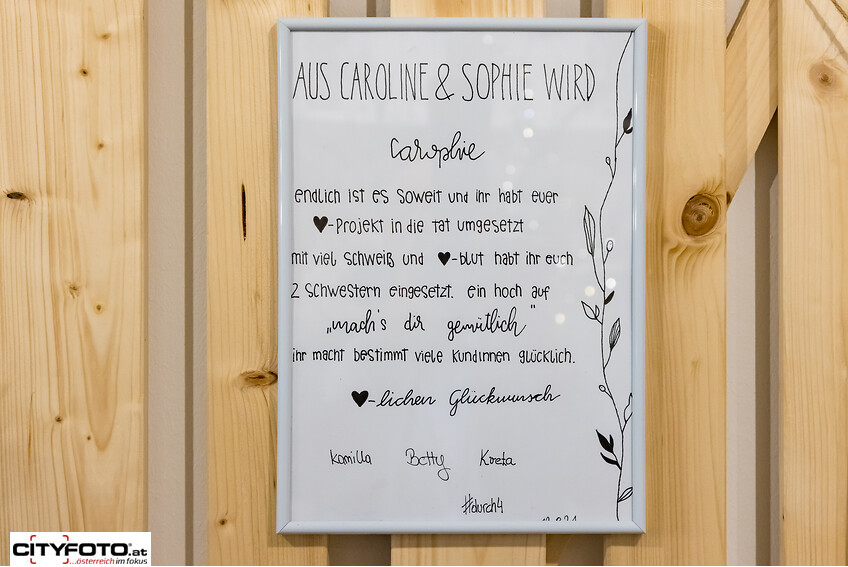 AUS CAROLINE & SOPHIE WIRD
Carophie
endlich ist es soweit und ihr habt euer
♥-Projekt in die tat umgesetzt
mit viel Schweiß und ♥-blut habt ihr euch
2 Schwestern eingesetzt. ein hoch auf
„mach's dir gemütlich"
ihr macht bestimmt viele kundinnen glücklich.
♥-lichen Glückwunsch
Kamilla Betty Kreta
#durch4
CITYFOTO.at
...österreich im fokus